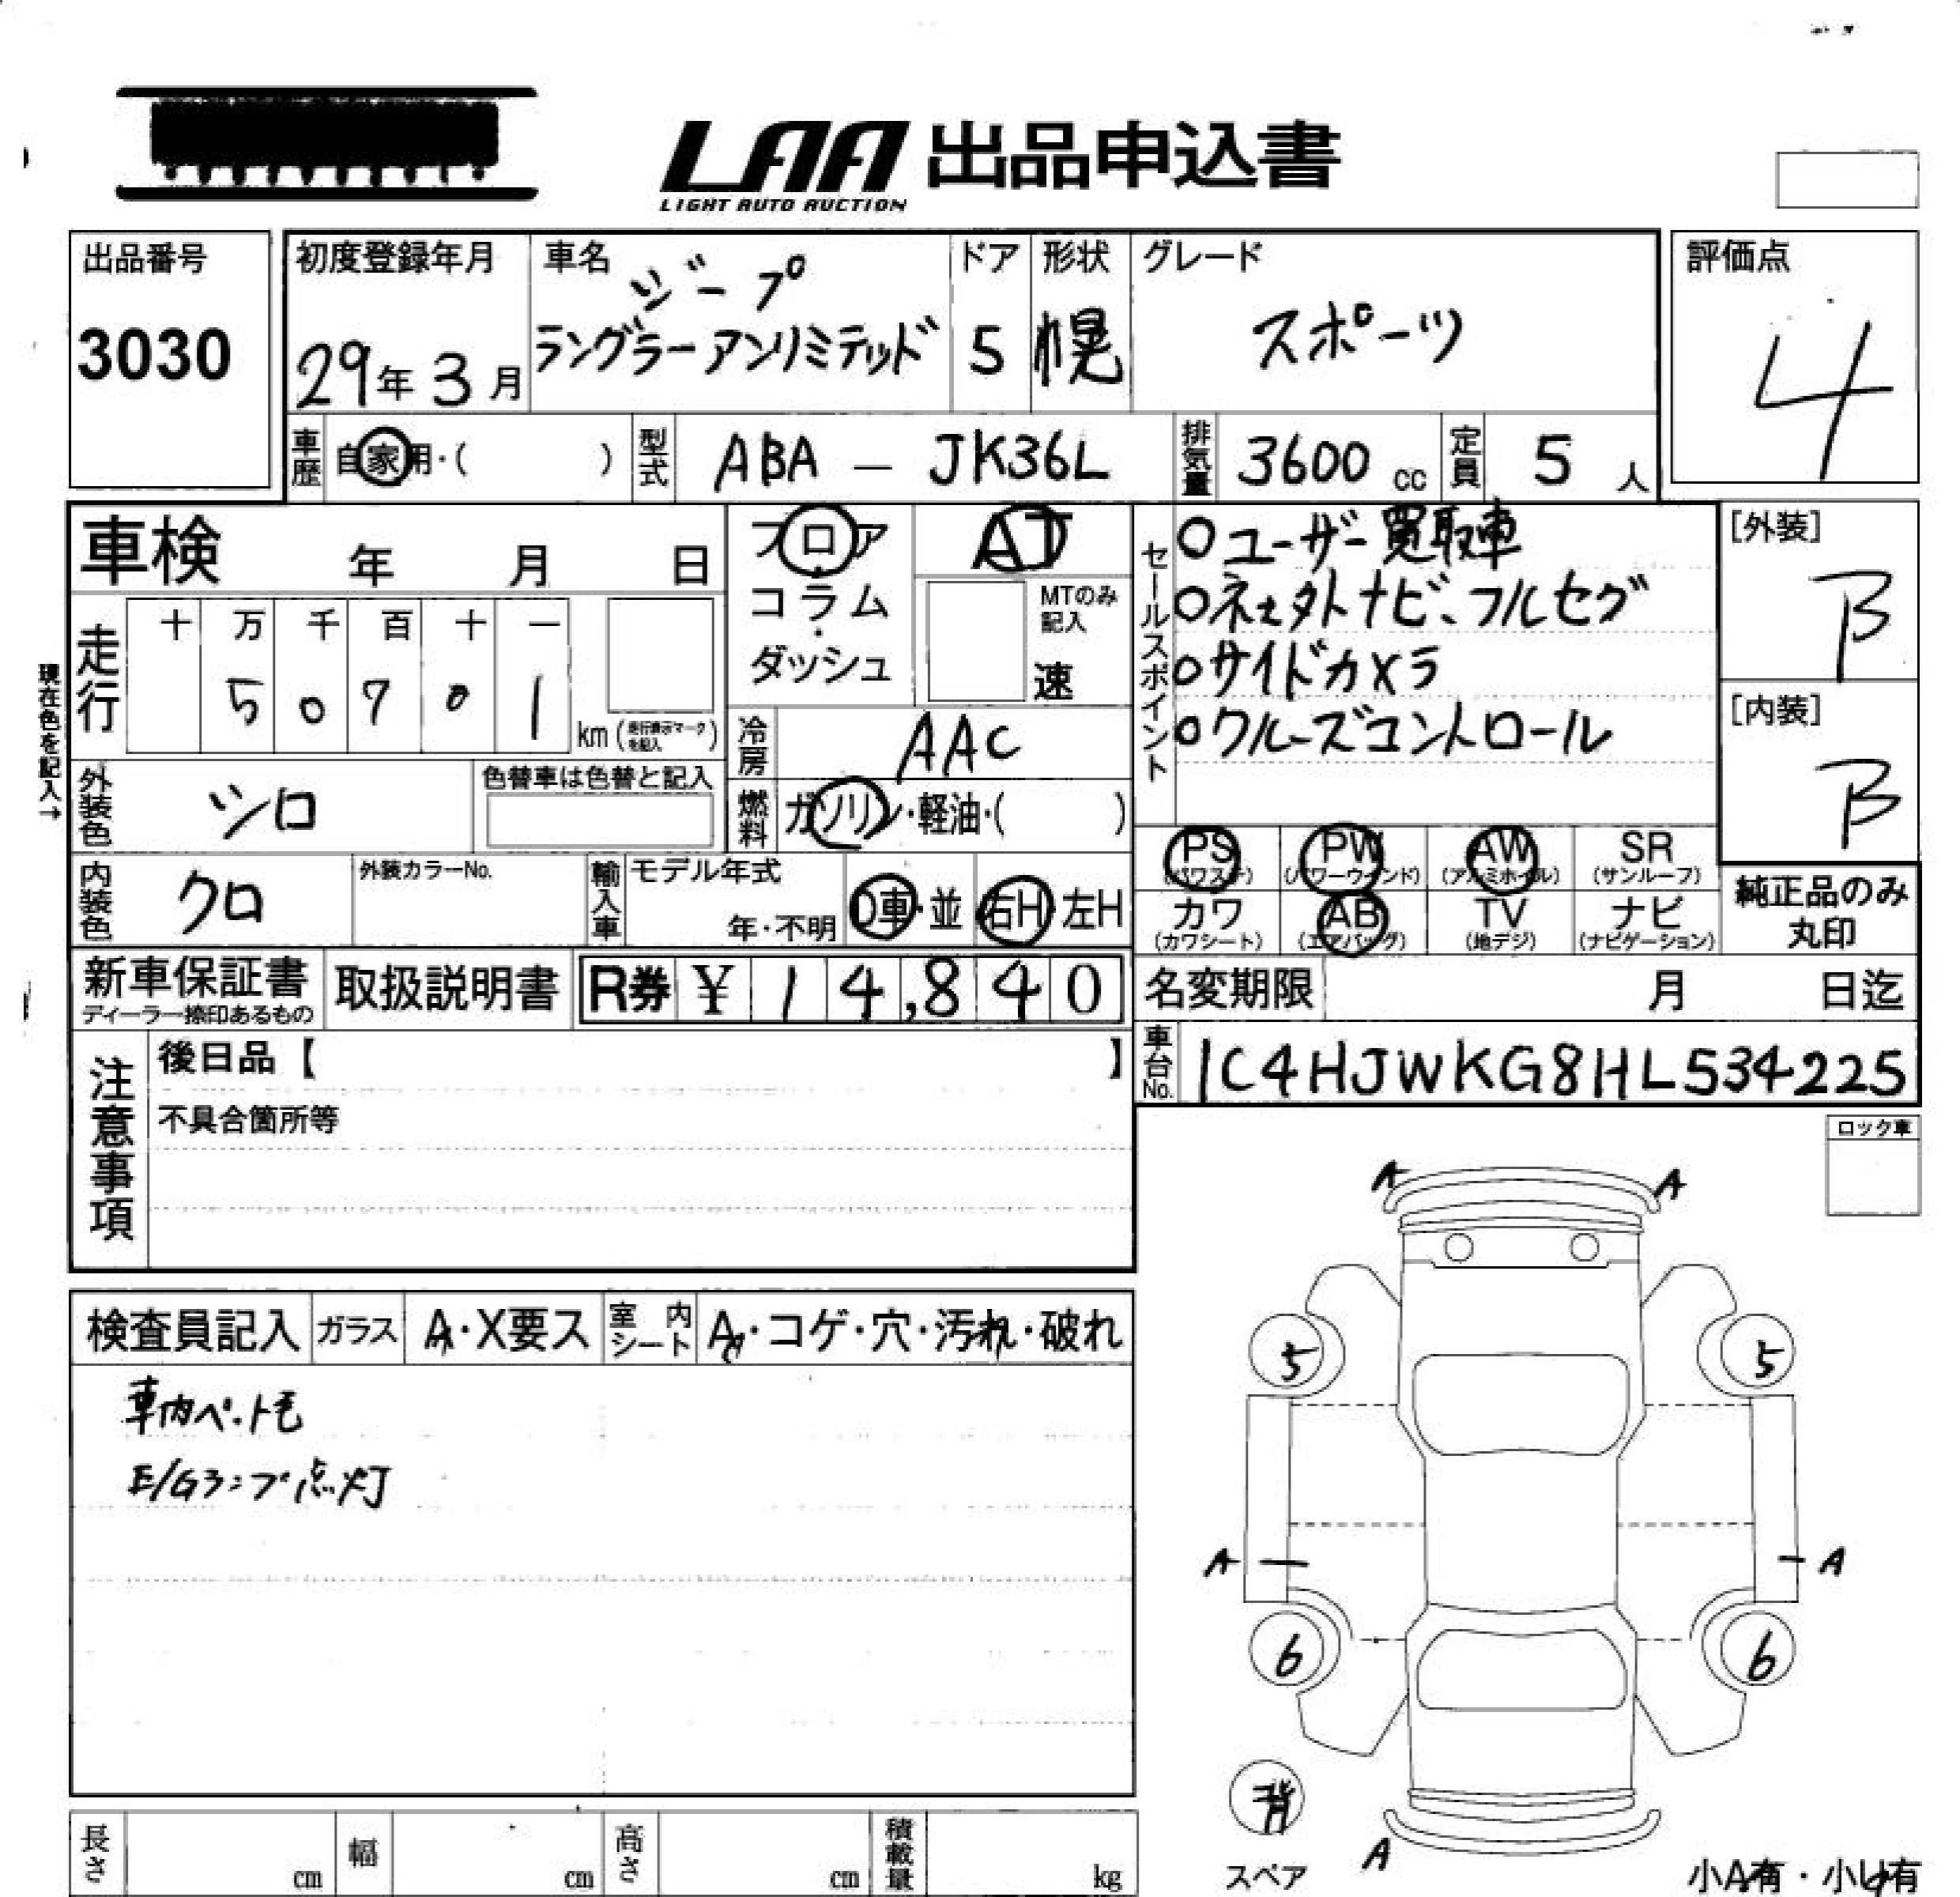 LAA 出品申込書
LIGHT AUTO AUCTION
出品番号
3030
初度登録年月
29年3月
車名
ジープ
ラングラーアンリミテッド
ドア
5
形状
幌
グレード
スポーツ
評価点
4
車歴
自家用・( )
型式
ABA - JK36L
排気量
3600 cc
定員
5 人
車検 年 月 日
フロア
コラム
・
ダッシュ
AT
MTのみ
記入
速
セールスポイント
○ユーザー買取車
○ネェタトナビ、フルセグ
○サイドカメラ
○クルーズコントロール
[外装]
B
[内装]
B
現在色を記入→
走行
十 万 千 百 十 一
5 0 7 0 1
km (走行表示マークを記入)
冷房
AAC
外装色
シロ
色替車は色替と記入
燃料
ガソリン・軽油・( )
PS
(パワステ)
PW
(パワーウインド)
AW
(アルミホイル)
SR
(サンルーフ)
カワ
(カワシート)
AB
(エアバッグ)
TV
(地デジ)
ナビ
(ナビゲーション)
純正品のみ
丸印
内装色
クロ
外装カラーNo.
輸入車
モデル年式
年・不明
D車・並
右H・左H
新車保証書
ディーラー捺印あるもの
取扱説明書
R券 ¥ 14,840
名変期限 月 日迄
車台No.
1C4HJWKG8HL534225
注意事項
後日品【 】
不具合箇所等
ロック車
検査員記入
ガラス
A・X要ス
室内シート
A・コゲ・穴・汚れ・破れ
車内ペット毛
E/Gランプ点灯
A
A
5
5
A
A
6
6
背
スペア
A
小A有・小U有
長さ cm
幅 cm
高さ cm
積載量 kg